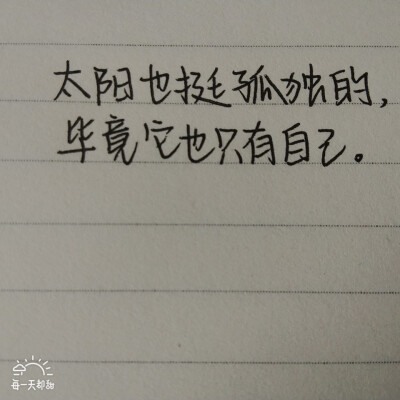 太阳也挺孤独的，
毕竟它也只有自己。
每一天都甜